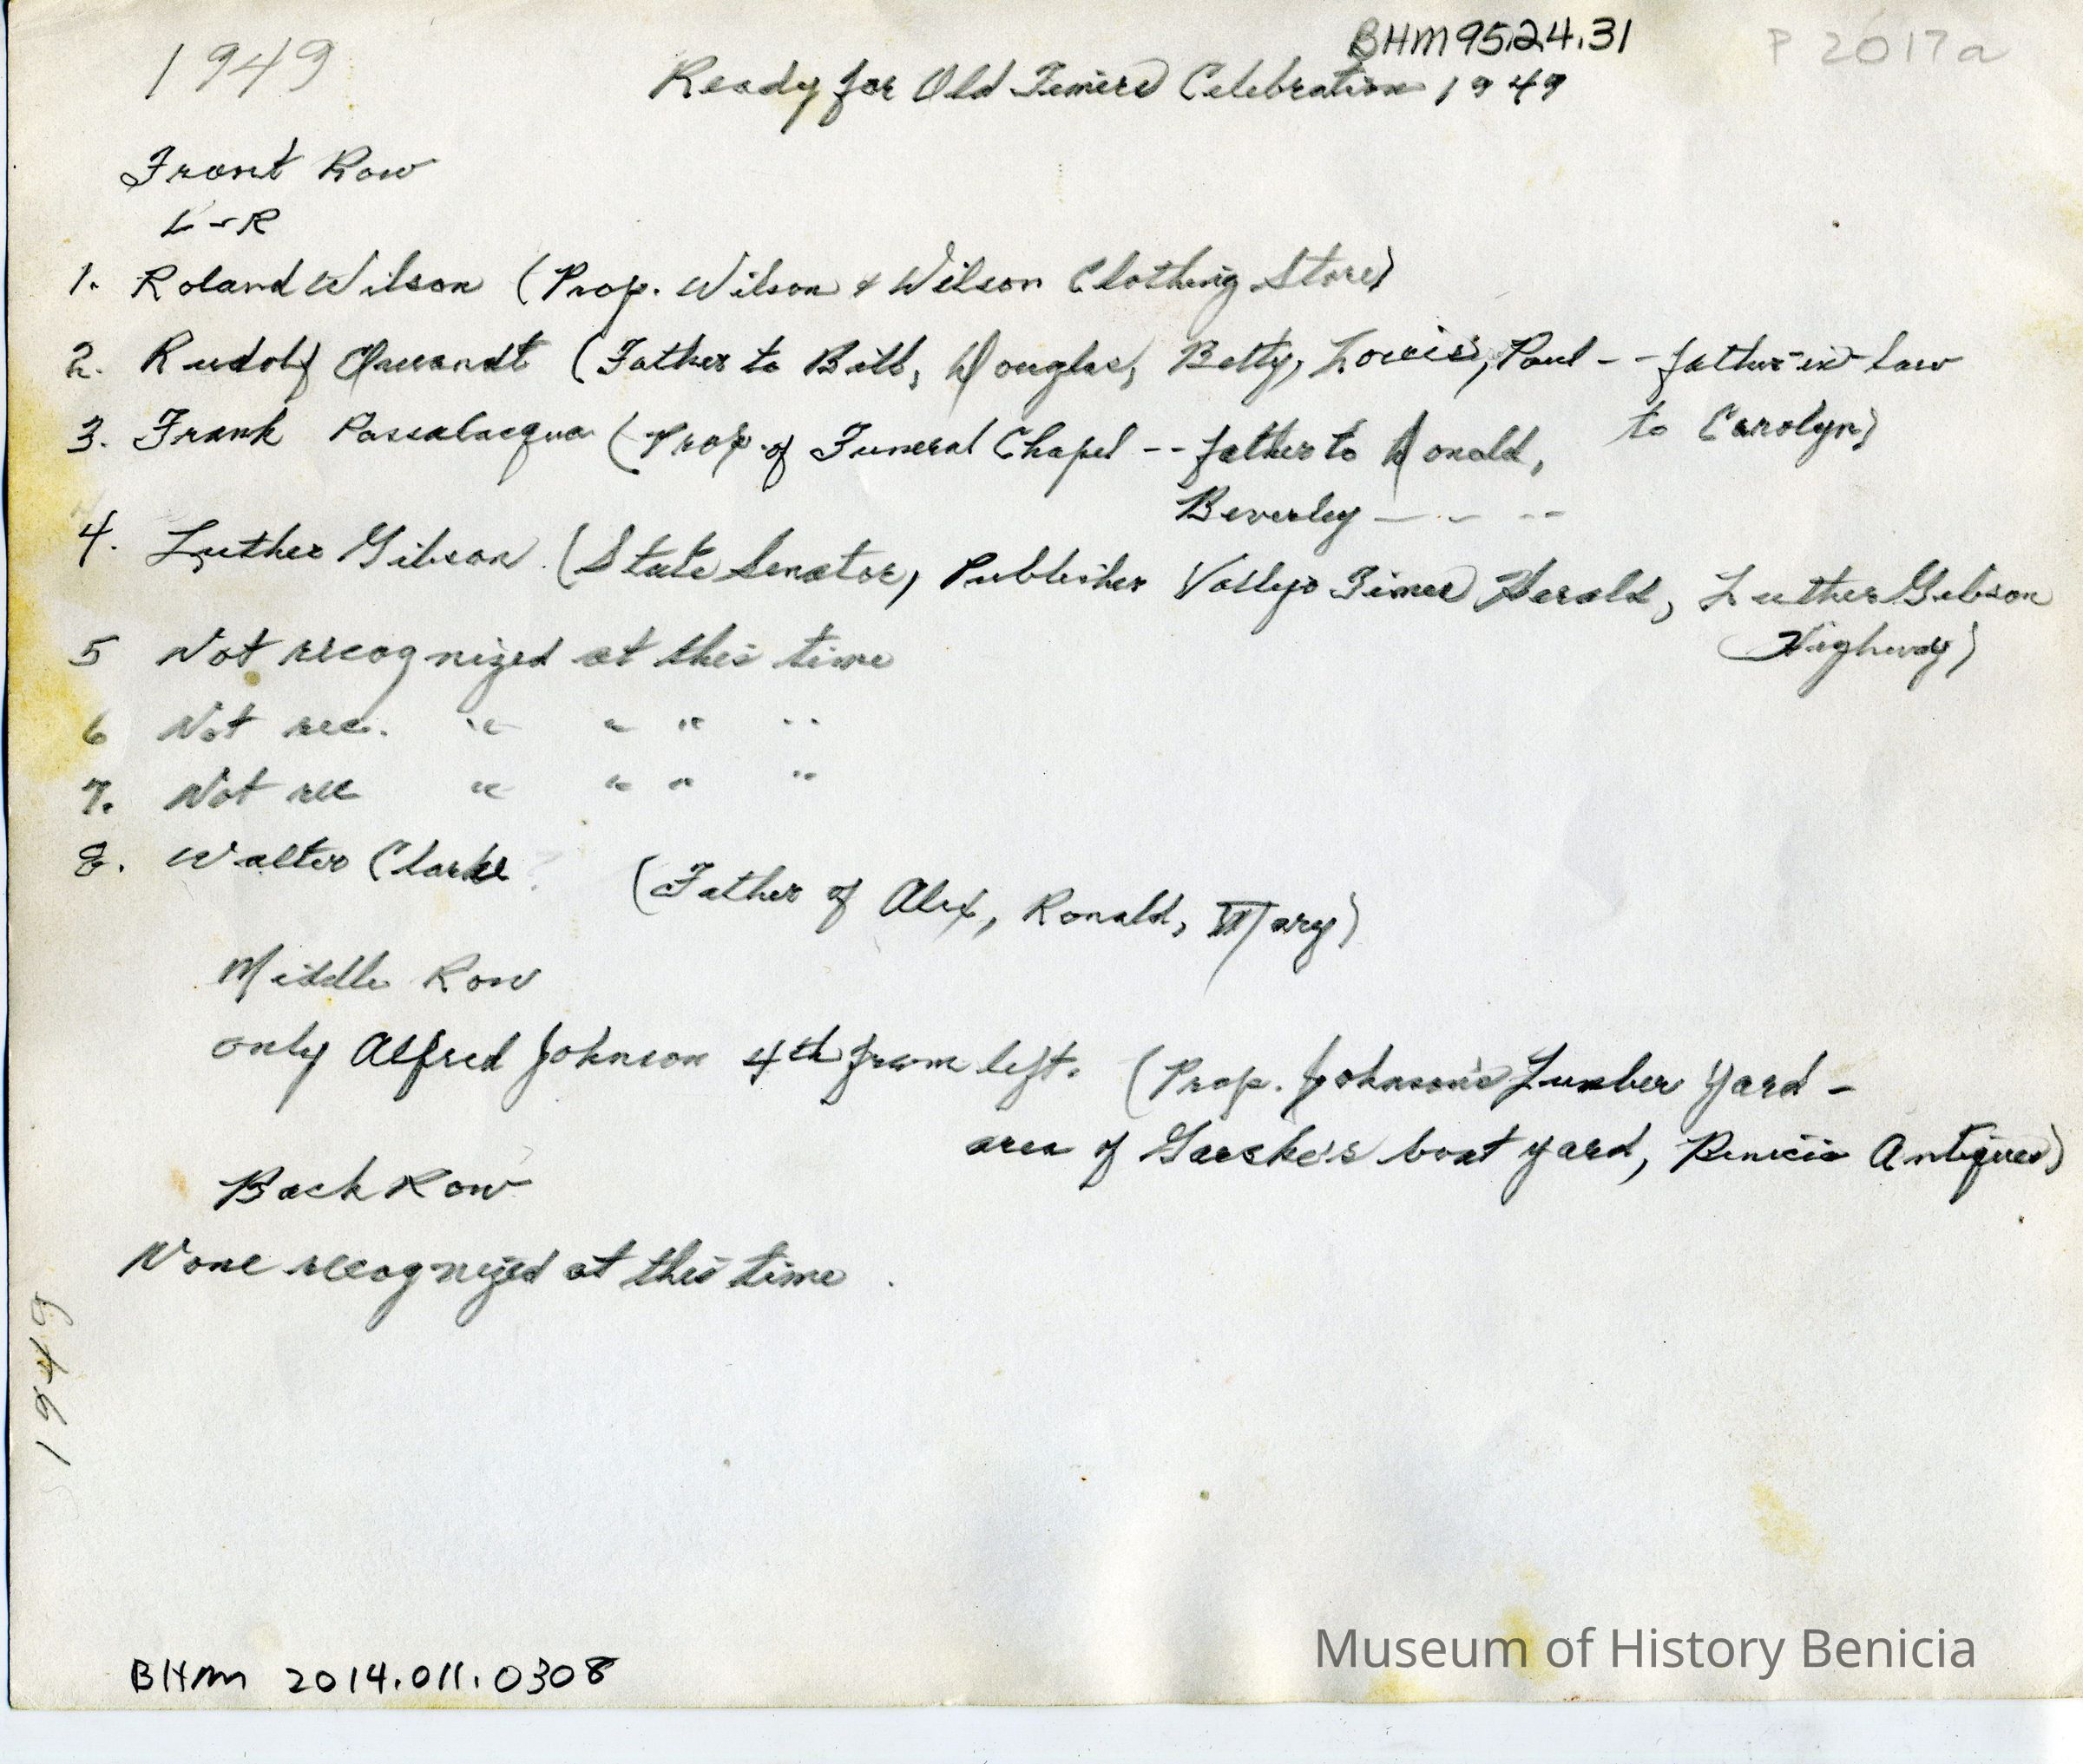 1949
BHM 95.24.31
P 2017a
Ready for Old Timers Celebration 1949
Front Row
L-R
1. Roland Wilson (Prop. Wilson & Wilson Clothing Store)
2. Rudolf (Father to Bill, Douglas, Betty, Louis, Paul -- father-in-law
to Carolyn)
3. Frank Passalacqua (Prop. of Funeral Chapel -- father to Donald,
Beverley — - --
4. Luther Gibson (State Senator, Publisher Vallejo Times Herald, Luther Gibson
Highway)
5 Not recognized at this time
6 Not rec. " " " "
7. Not rec " " " "
8. Walter Clarke (Father of Alex, Ronald, Mary)
Middle Row
only Alfred Johnson 4th from left. (Prop. Johnson's Lumber Yard -
area of Garske's boat yard, Benicia Antiques)
Back Row
None recognized at this time.
1949
BHM 2014.011.0308
Museum of History Benicia